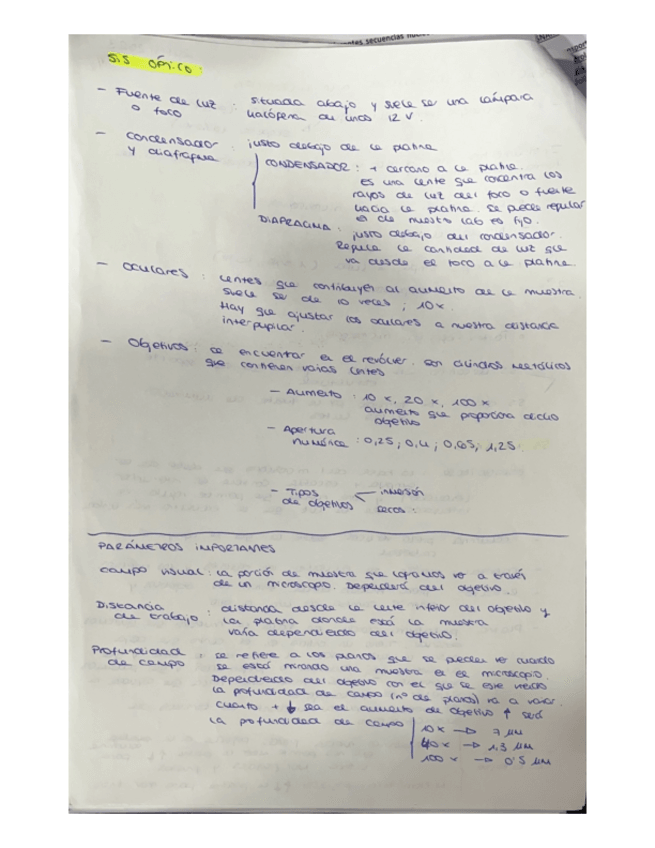 SIS ÓPTICO:
- Fuente de luz : situada abajo y suele ser una lámpara
o foco halógena de unos 12 V.
- Condensador : justo debajo de la platina
y diafragma
CONDENSADOR : + cercano a la platina.
es una lente que concentra los
rayos de luz del foco o fuente
hacia la platina. Se puede regular
el de nuestro lab es fijo.
DIAFRAGMA : justo debajo del condensador.
Regula la cantidad de luz que
va desde el foco a la platina.
- Oculares : lentes que contribuyen al aumento de la muestra.
suele ser de 10 veces ; 10x.
Hay que ajustar los oculares a nuestra distancia
interpupilar.
- Objetivos : se encuentran en el revólver. son cilindros metálicos
que contienen varias lentes
- Aumento : 10x, 20x, 100x
aumento que proporciona dicho
objetivo
- Apertura
numérica : 0,25 ; 0,4 ; 0,65 ; 1,25
- Tipos inmersión
de objetivos secos :
PARÁMETROS IMPORTANTES
campo visual : la porción de muestra que logramos ver a través
de un microscopio. Dependerá del objetivo
Distancia : distancia desde la lente inferior del objetivo y
de trabajo la platina donde está la muestra
varía dependiendo del objetivo.
Profundidad : se refiere a los planos que se pueden ver cuando
de campo se está mirando una muestra en el microscopio.
Dependiendo del objetivo con el que se esté viendo
la profundidad de campo (nº de planos) va a variar.
cuanto + ↓ sea el aumento de objetivo ↑ será
la profundidad de campo
10x → 7 µm
40x → 1,3 µm
100x → 0'5 µm